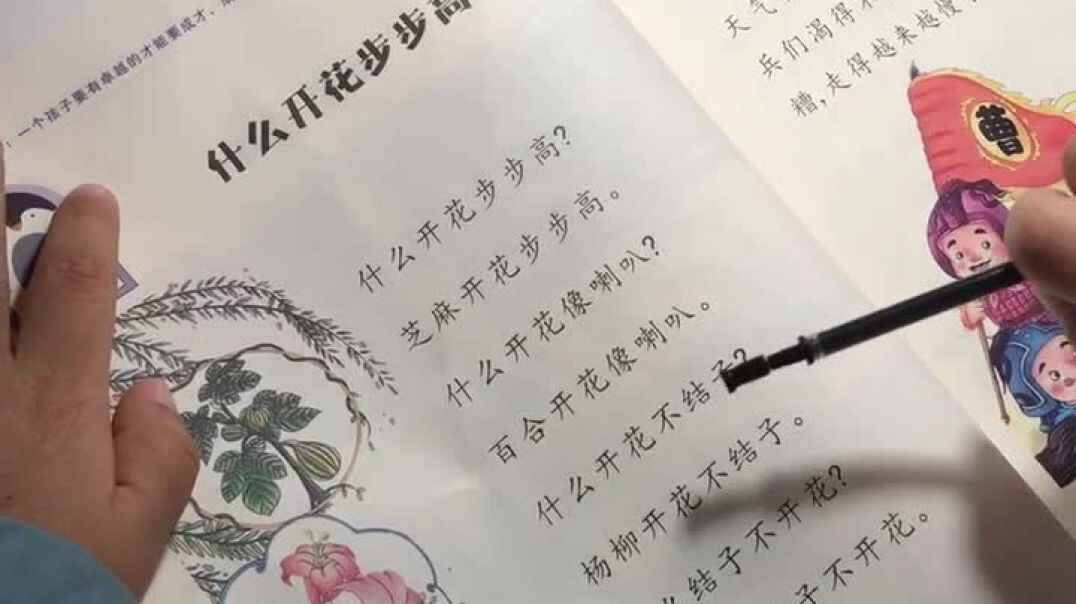 一个孩子要有卓越的才能要成才，
什么开花步步高
什么开花步步高？
芝麻开花步步高。
什么开花像喇叭？
百合开花像喇叭。
什么开花不结子？
杨柳开花不结子。
结子不开花？
子不开花。
天气
兵们渴得
糟，走得越来越慢
曹